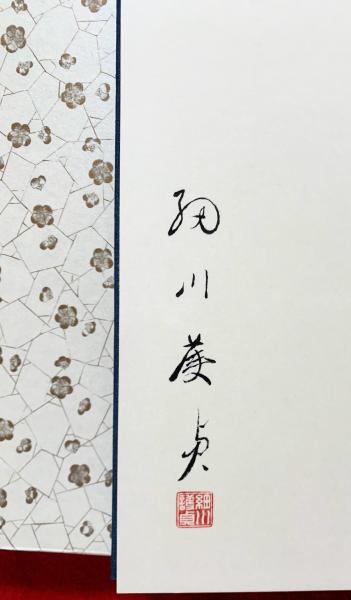 細川護貞
細川護貞